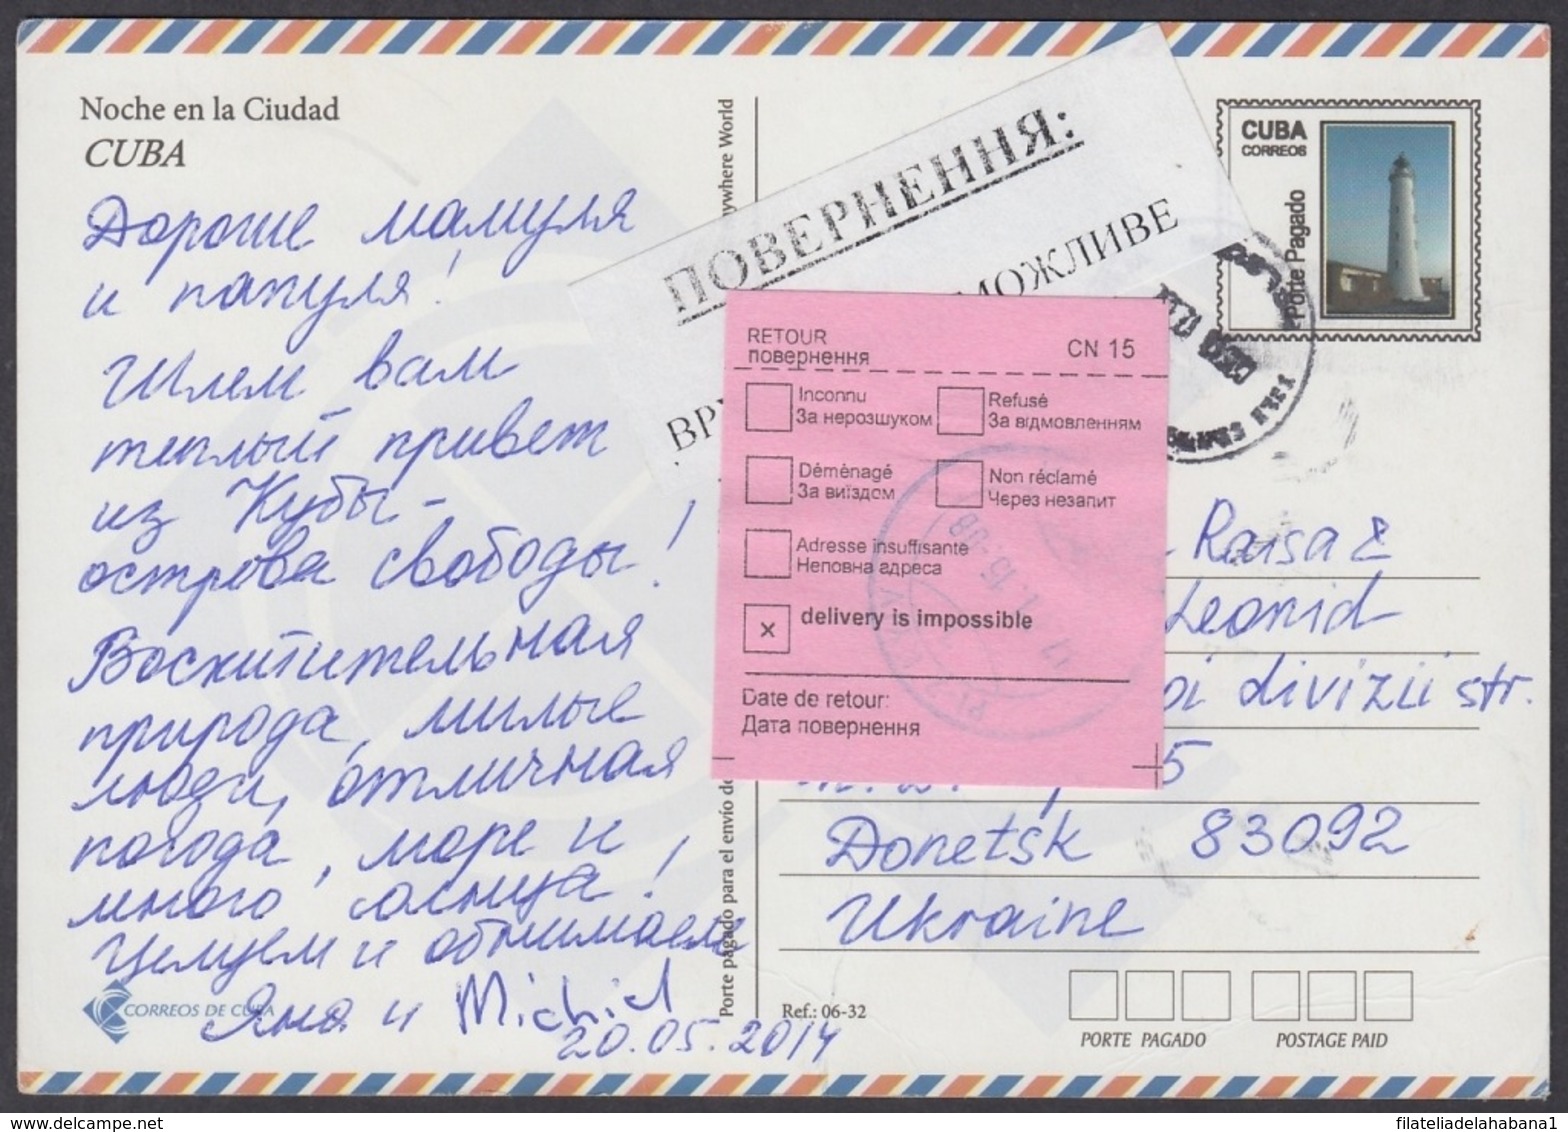 Noche en la Ciudad
CUBA
Дорогие мамуля
и папуля!
Шлем вам
теплый привет
из Кубы –
острова свободы!
Восхитительная
природа, милые
люди, отличная
погода, море и
много солнца!
Целуем и обнимаем
Яна и Michiel
20.05.2014
CORREOS DE CUBA
Porte pagado para el envío de
ywhere World
ПОВЕРНЕННЯ:
МОЖЛИВЕ
ВР
CUBA
CORREOS
Porte Pagado
RETOUR
повернення
CN 15
Inconnu
За нерозшуком
Refusé
За відмовленням
Déménagé
За виїздом
Non réclamé
Через незапит
Adresse insuffisante
Неповна адреса
x delivery is impossible
Date de retour:
Дата повернення
Raisa &
Leonid
oi divizii str.
5
Donetsk 83092
Ukraine
Ref.: 06-32
PORTE PAGADO
POSTAGE PAID
filateliadelahabana1